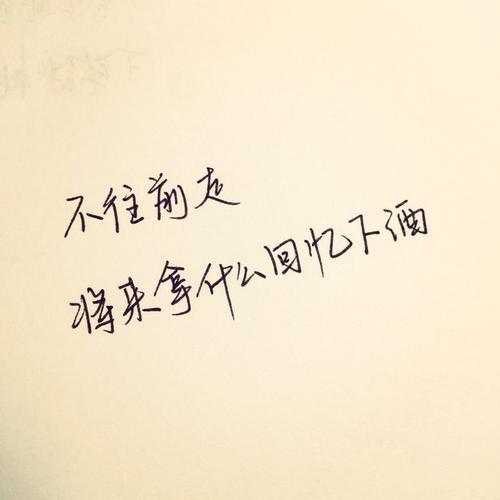 不往前走
将来拿什么回忆下酒